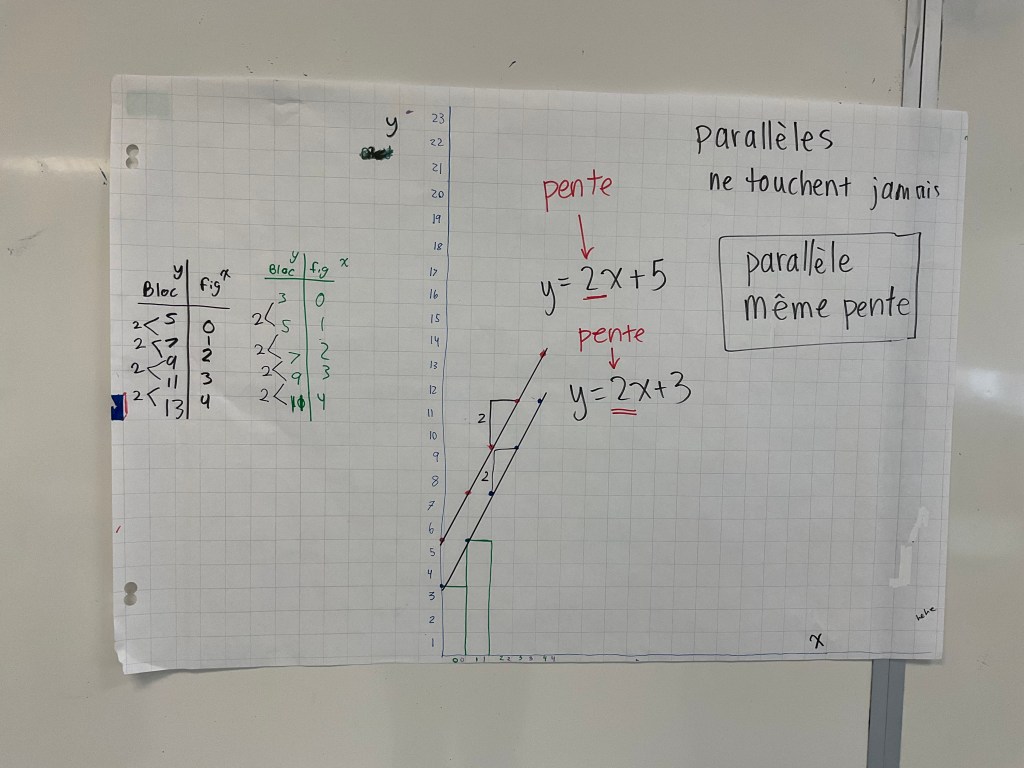 parallèles
ne touchent jamais
parallèle
même pente
pente
y = 2x + 5
pente
y = 2x + 3
y
23
22
21
20
19
18
17
16
15
14
13
12
11
10
9
8
7
6
5
4
3
2
1
2
2
x
hehe
y x
Bloc fig
5 0
7 1
9 2
11 3
13 4
2
2
2
2
y x
Bloc fig
3 0
5 1
7 2
9 3
4
2
2
2
2